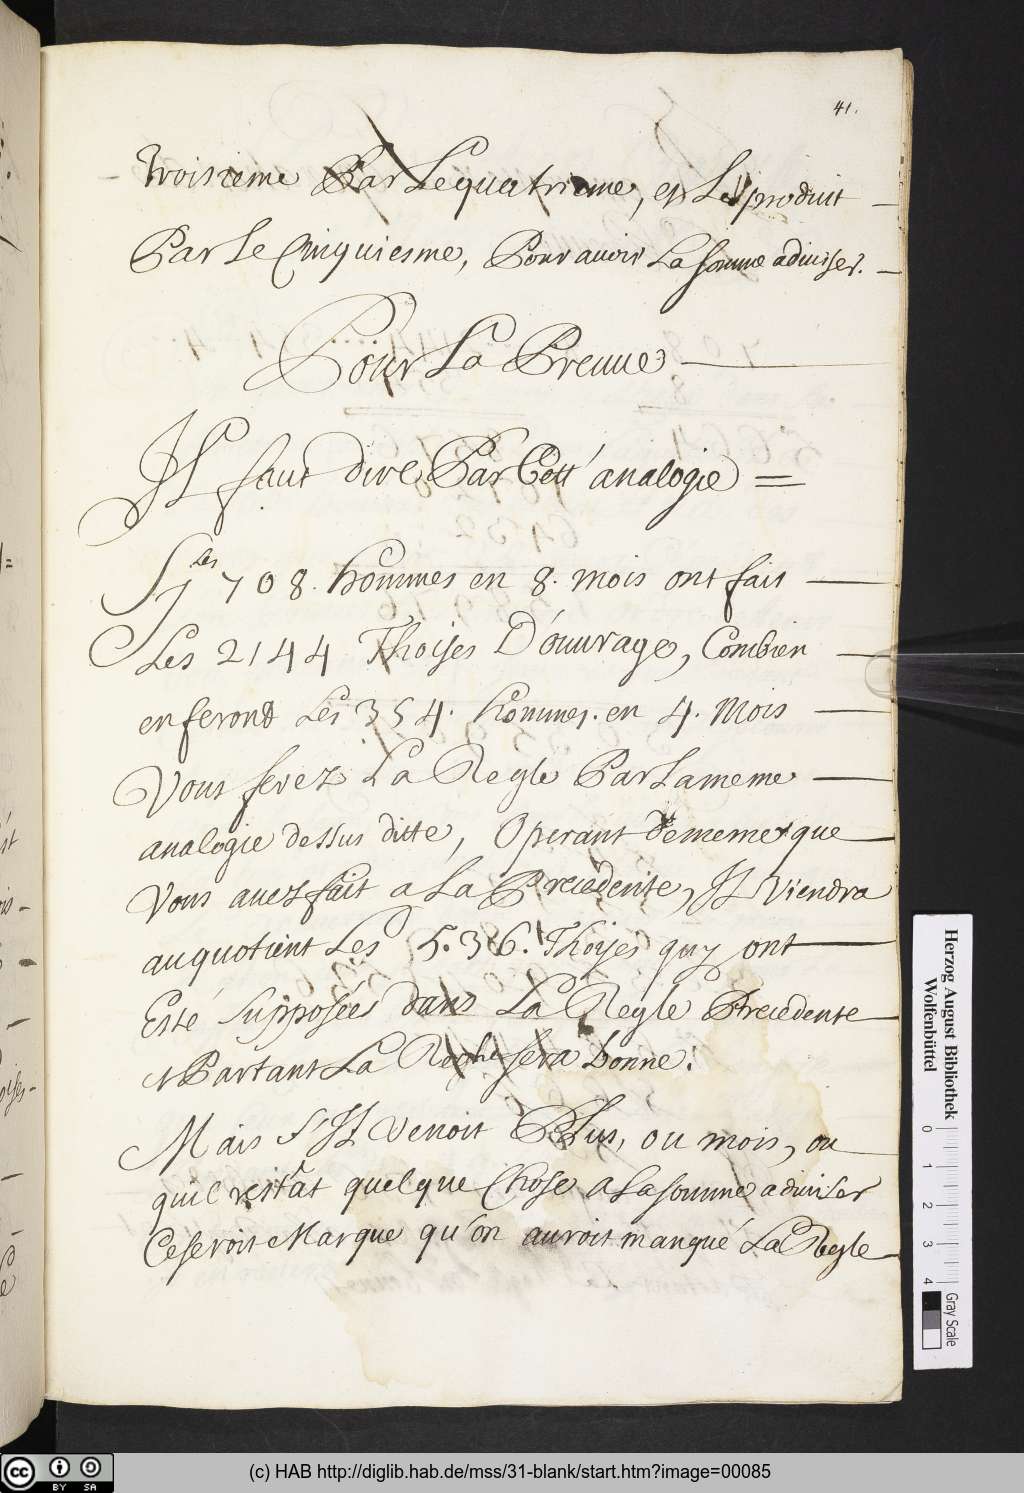 41.
troisieme Par Le quatrieme, et Le produit
Par Le Cinquiesme, Pour avoir La somme adiviser.
Pour La Preuue
Il faut dire Par Cett' analogie =
Sy les 708. hommes en 8. mois ont fait
Les 2144 Thoises D'ouurage, Combien
en feront Les 354. hommes. en 4. Mois
Vous ferez La Regle Par La meme
analogie dessus ditte, Operant de meme que
Vous auez fait a La Precedente, Il Viendra
au quotient Les 536. Thoises quy ont
Esté Supposées dans La Regle Precedente
et Partant La Regle sera bonne.
Mais S'Il Venoit Plus, ou mois, ou
quil restat quelque Chose a La somme adiuiser
Ce seroit Marque qu'on auroit manqué La Regle
Herzog August Bibliothek
Wolfenbüttel
0 1 2 3 4
Gray Scale
cc BY SA
(c) HAB http://diglib.hab.de/mss/31-blank/start.htm?image=00085